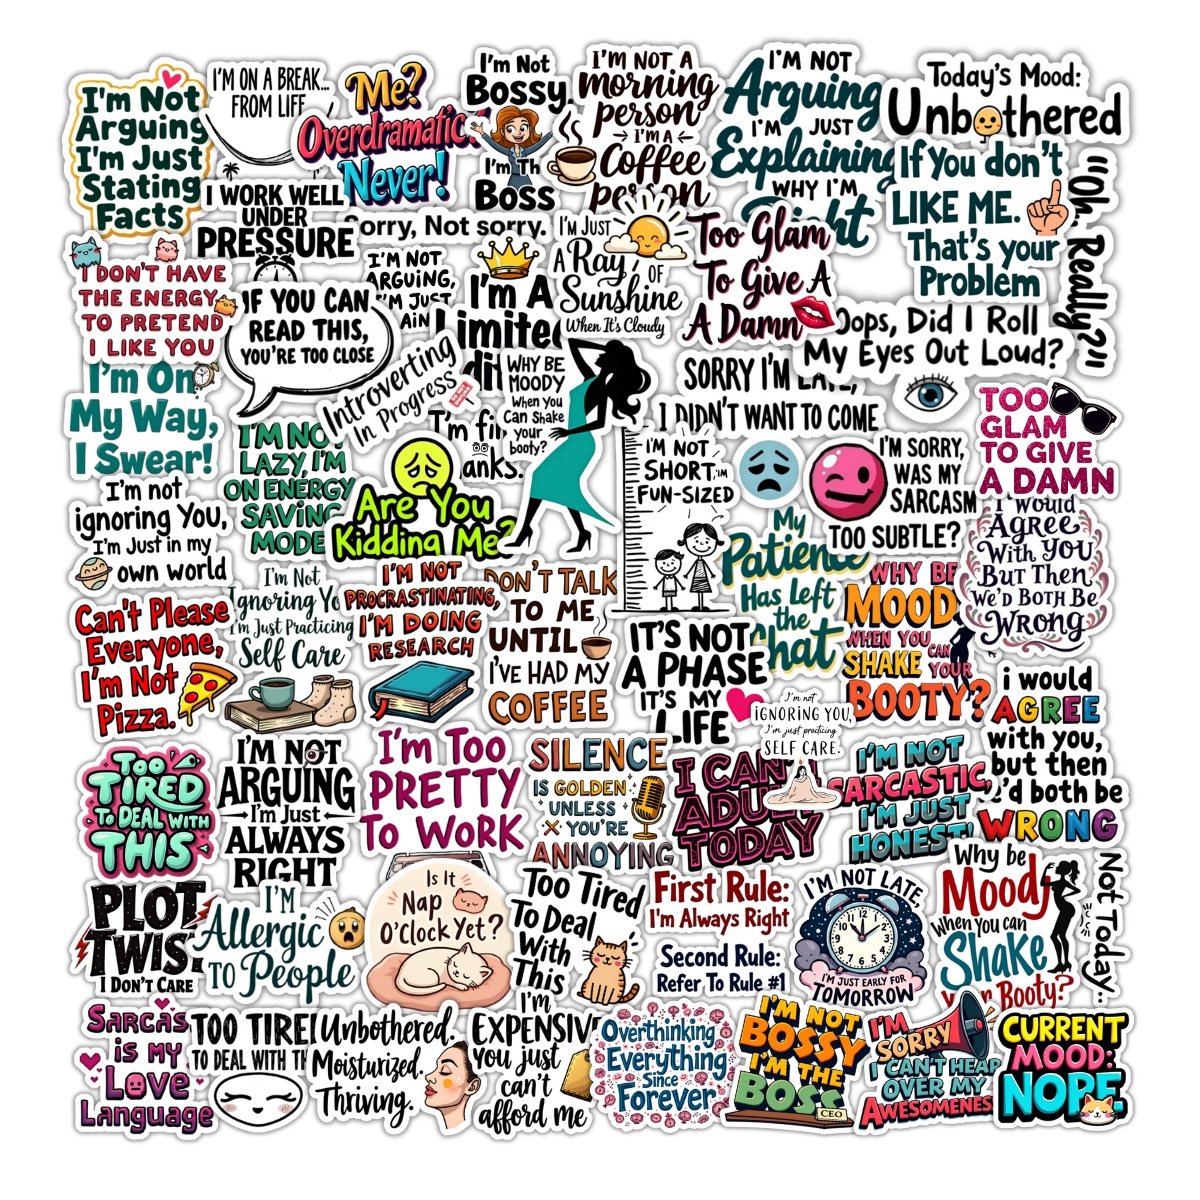 I'm Not
Arguing
I'm Just
Stating
Facts
I'M ON A BREAK...
FROM LIFE
Me?
Overdramatic?
Never!
I'm Not
Bossy.
I'm Th
Boss
I'M NOT A
morning
person
I'M A
Coffee
person
I'M NOT
Arguing
I'M JUST
Explaining
WHY I'M
Right
Today's Mood:
Unbothered
I WORK WELL
UNDER
PRESSURE
Sorry, Not sorry.
I'M JUST
A Ray OF
Sunshine
When It's Cloudy
Too Glam
To Give A
A Damn
If you don't
LIKE ME.
That's your
Problem
"Oh, Really?"
I DON'T HAVE
THE ENERGY
TO PRETEND
I LIKE YOU
IF YOU CAN
READ THIS,
YOU'RE TOO CLOSE
I'M NOT
ARGUING,
I'M JUST
I'm A
Limited
Introverting
In Progress
WHY BE
MOODY
When You
Can Shake
your
booty?
SORRY I'M LATE,
I DIDN'T WANT TO COME
Oops, Did I Roll
My Eyes Out Loud?
I'm On
My Way,
I Swear!
I'M NOT
LAZY, I'M
ON ENERGY
SAVING
MODE
I'm fi
anks.
Are You
Kidding Me?
I'M NOT
SHORT, I'M
FUN-SIZED
I'M SORRY,
WAS MY
SARCASM
TOO SUBTLE?
TOO
GLAM
TO GIVE
A DAMN
I'm not
ignoring You,
I'm Just in my
own world
My
Patience
Has Left
the
Chat
I Would
Agree
With You
But Then
We'd Both Be
Wrong
Can't Please
Everyone,
I'm Not
Pizza.
I'm Not
Ignoring Yo
I'm Just Practicing
Self Care
I'M NOT
PROCRASTINATING,
I'M DOING
RESEARCH
DON'T TALK
TO ME
UNTIL
I'VE HAD MY
COFFEE
IT'S NOT
A PHASE
IT'S MY
LIFE
WHY BE
MOOD
WHEN YOU CAN
SHAKE YOUR
BOOTY?
I'm not
IGNORING YOU,
I'm just practicing
SELF CARE.
i would
AGREE
with you,
but then
we'd both be
WRONG
TOO
TIRED
TO DEAL WITH
THIS
I'M NOT
ARGUING
I'm Just
ALWAYS
RIGHT
I'm Too
PRETTY
To WORK
SILENCE
IS GOLDEN
UNLESS
YOU'RE
ANNOYING
I CAN'T
ADULT
TODAY
I'M NOT
SARCASTIC,
I'M JUST
HONEST!
PLOT
TWIST
I DON'T CARE
I'M
Allergic
TO People
Is It
Nap
O'Clock Yet?
Too Tired
To Deal
With
This
First Rule:
I'm Always Right
Second Rule:
Refer To Rule #1
I'M NOT LATE,
I'M JUST EARLY FOR
TOMORROW
Why be
Moody
When you can
Shake
Your Booty?
Not Today..
SARCAS
is my
Love
Language
TOO TIRE
TO DEAL WITH TH
Unbothered.
Moisturized.
Thriving.
I'm
EXPENSIV
you just
can't
afford me
Overthinking
Everything
Since
Forever
I'M NOT
BOSSY
I'M THE
BOSS
CEO
I'M
SORRY
I CAN'T HEAR
OVER MY
AWESOMENES
CURRENT
MOOD:
NOPE.